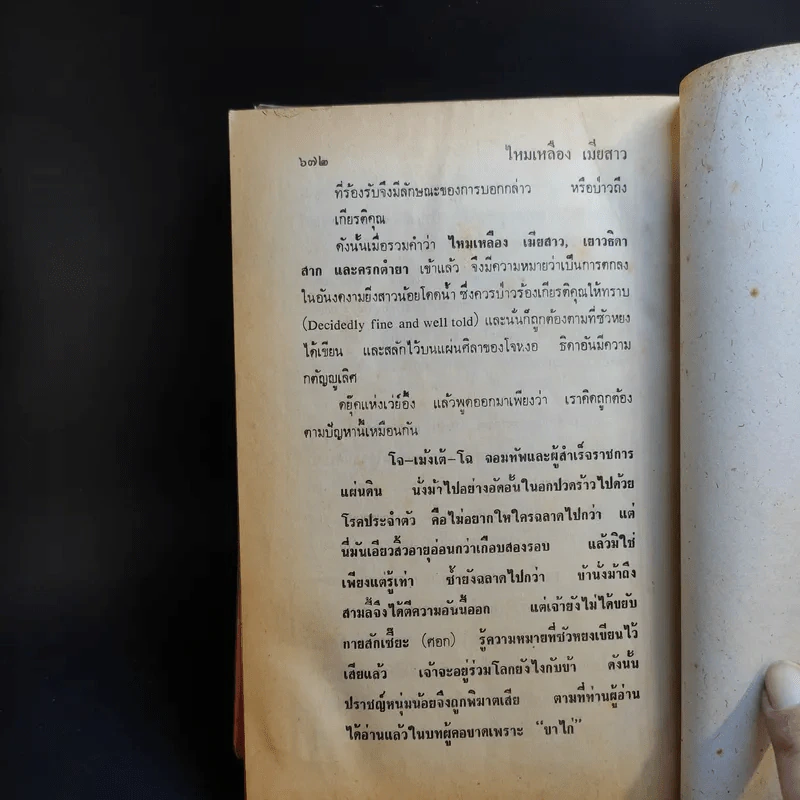 ๖๗๒ ไหมเหลือง เมียสาว
ที่ร้องรับจึงมีลักษณะของการบอกกล่าว หรือป่าวถึง
เกียรติคุณ
ดังนั้นเมื่อรวมคำว่า ไหมเหลือง เมียสาว, เยาวธิดา
สาก และครกตำยา เข้าแล้ว จึงมีความหมายว่าเป็นการตกลง
ในอันงดงามยิ่งสาวน้อยโดดน้ำ ซึ่งควรป่าวร้องเกียรติคุณให้ทราบ
(Decidedly fine and well told) และนั่นก็ถูกต้องตามที่ซัวหยง
ได้เขียน และสลักไว้บนแผ่นศิลาของโจหงอ ธิดาอันมีความ
กตัญญูเลิศ
ดยุ๊คแห่งเว่ย์อึ้ง แล้วพูดออกมาเพียงว่า เราคิดถูกต้อง
ตามปัญหานี้เหมือนกัน
โจ–เม้งเต้–โฉ จอมทัพและผู้สำเร็จราชการ
แผ่นดิน นั่งม้าไปอย่างอัดอั้นในอกปวดร้าวไปด้วย
โรคประจำตัว คือไม่อยากให้ใครฉลาดไปกว่า แต่
นี่มันเอียวสิ้วอายุอ่อนกว่าเกือบสองรอบ แล้วมิใช่
เพียงแต่รู้เท่า ซ้ำยังฉลาดไปกว่า ข้านั่งม้าถึง
สามลี้จึงได้ตีความอันนี้ออก แต่เจ้ายังไม่ได้ขยับ
กายสักเชี๊ยะ (ศอก) รู้ความหมายที่ซัวหยงเขียนไว้
เสียแล้ว เจ้าจะอยู่ร่วมโลกยังไงกับข้า ดังนั้น
ปราชญ์หนุ่มน้อยจึงถูกพิฆาตเสีย ตามที่ท่านผู้อ่าน
ได้อ่านแล้วในบทผู้คอขาดเพราะ “ขาไก่”